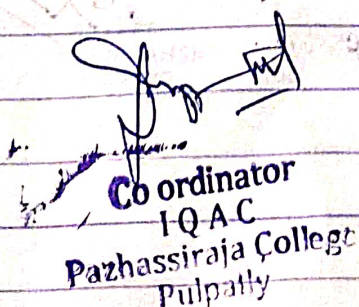 Co ordinator
I Q A C
Pazhassiraja College
Pulpally